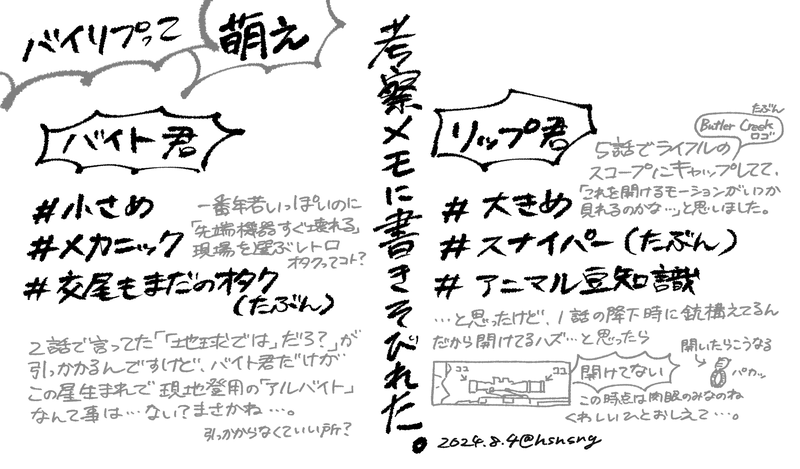 バイリプって
萌え
考察メモに書きそびれた。
バイト君
#小さめ
#メカニック
#交尾もまだのオタク
(たぶん)
一番年若いっぽいのに
「先端機器すぐ壊れる」
現場を選ぶレトロ
オタクってコト?
2話で言ってた「「地球では」だろ?」が
引っかかるんですけど、バイト君だけが
この星生まれで現地登用の「アルバイト」
なんて事は…ない?まさかね…。
引っかからなくていい所?
リップ君
#大きめ
#スナイパー(たぶん)
#アニマル豆知識
たぶん
Butler Creek
ロゴ
5話でライフルの
スコープにキャップしてて、
「これを開けるモーションがいつか
見れるのかな…」と思いました。
…と思ったけど、1話の降下時に銃構えてるん
だから開けてるハズ…と思ったら
ココ
ココ
開けてない
開いたらこうなる
パカッ
この時点は肉眼のみなのね
くわしいひとおしえて…。
2024.8.4@hsnsng